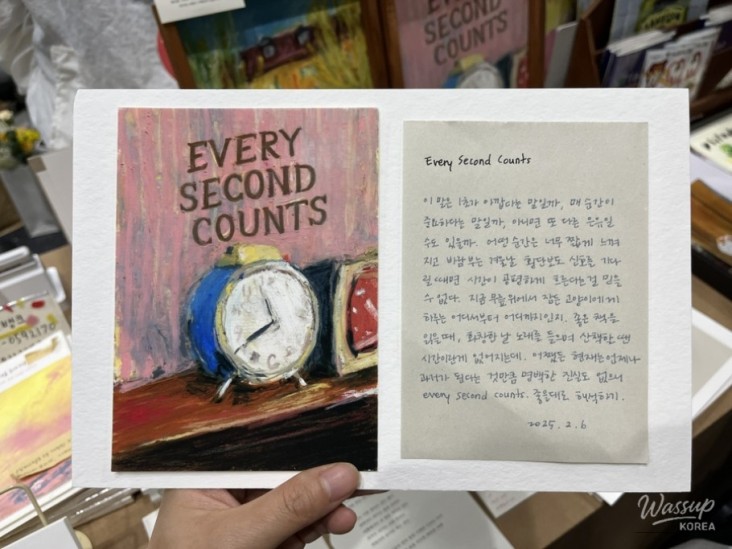 EVERY
SECOND
COUNTS
Every Second Counts
이 말은 1초가 아깝다는 말일까, 매 순간이
중요하다는 말일까, 아니면 또 다른 은유일
수도 있을까. 어떤 순간은 너무 짧게 느껴
지고 바람부는 겨울날 횡단보도 신호를 기다
릴 때면 시간이 공평하게 흐른다는걸 믿을
수 없다. 지금 무릎 위에서 잠든 고양이에게
하루는 어디서부터 어디까지일까. 좋은 책을
읽을때, 화창한 날 노래를 들으며 산책할 땐
시간이란게 없어지는데. 어쨌든 현재는 언제나
과거가 된다는 것만큼 명백한 진실도 없으니
every second counts. 좋을대로 해석하기.
2025. 2. 6
SECOND
COUNTS
Wassup
KOREA